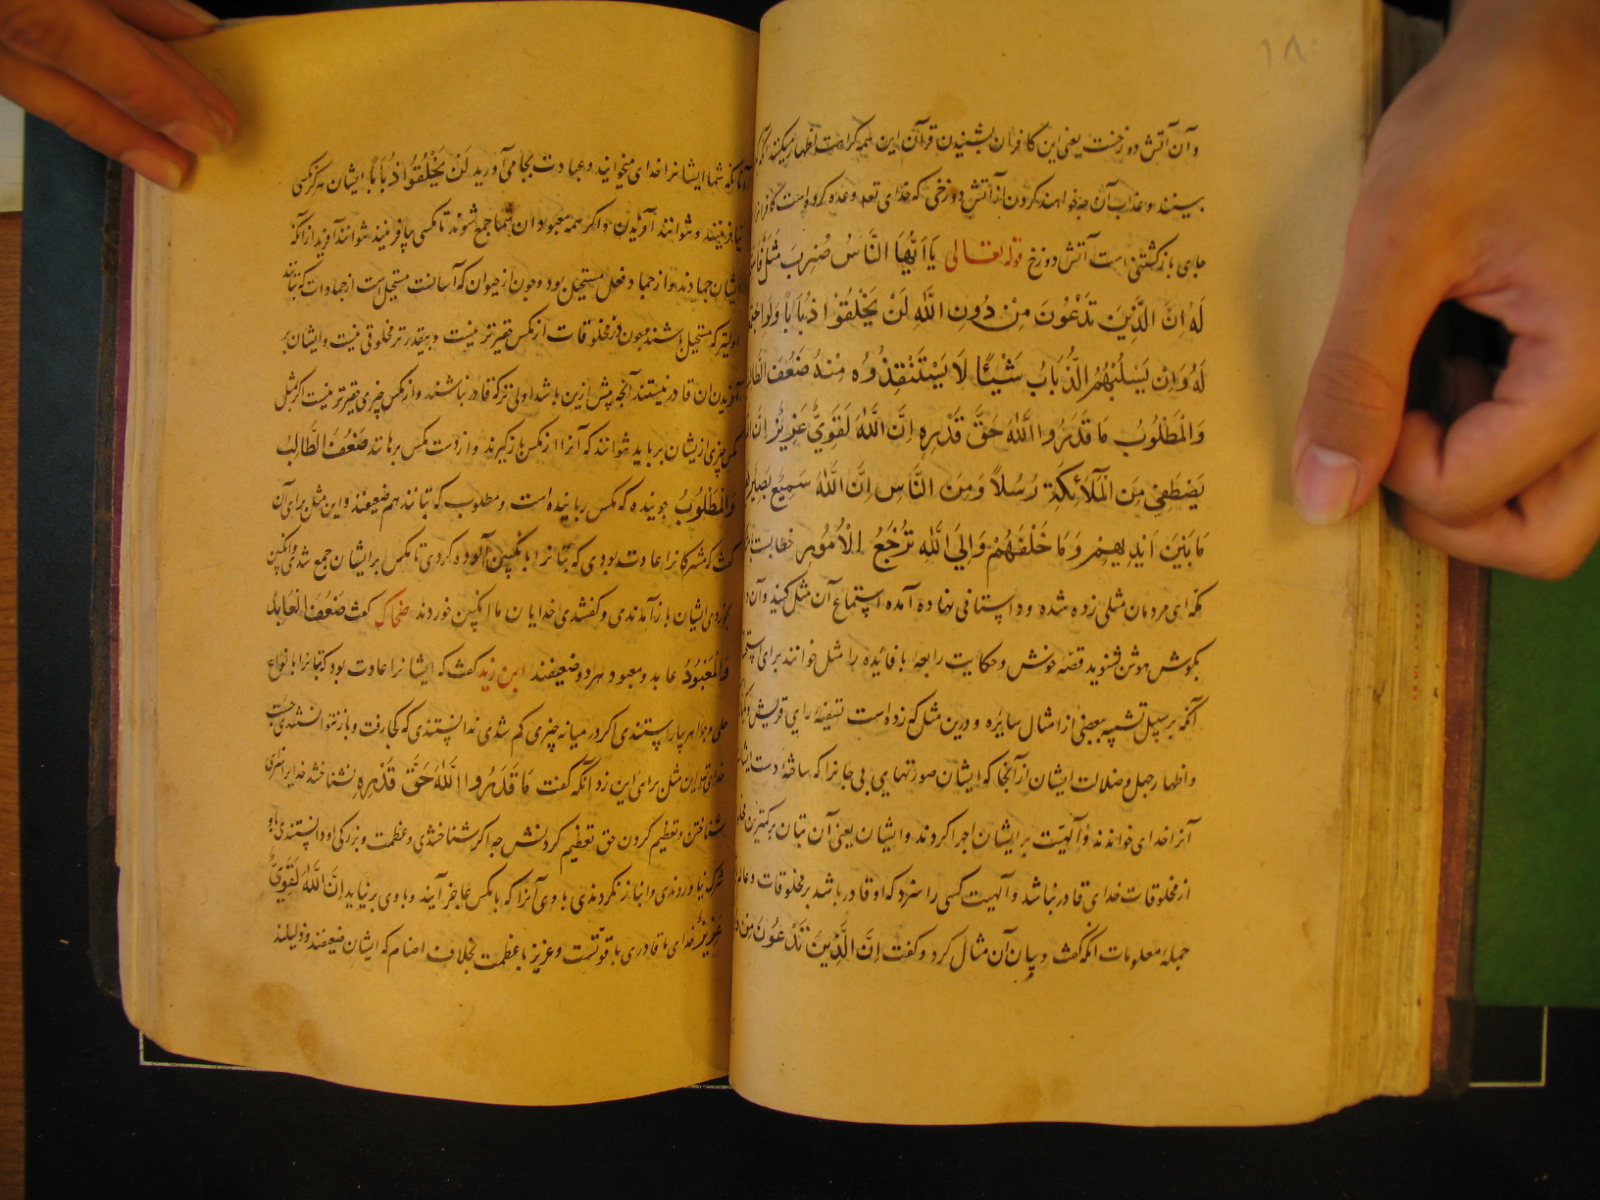 ۱۸
وآن آتش دوزخست یعنی این کافران بشنیدن قرآن این همه کراهت اظهار میکنند
ببینند و عذاب آن چه خواهند کردن از آتش دوزخی که خدای تعه وعده کرده است کافرانرا
جای بازکشتنی است آتش دوزخ قوله تعالی یَا اَیُّهَا النَّاسُ ضُرِبَ مَثَلٌ
لَهُ اِنَّ الَّذِیْنَ تَدْعُونَ مِنْ دُونِ اللّٰهِ لَنْ یَخْلُقُوْا ذُبَاباً وَلَوِ
لَهُ وَاِنْ یَسْلُبْهُمُ الذُّبَابُ شَیْئًا لَا یَسْتَنْقِذُوهُ مِنْهُ ضَعُفَ
وَالْمَطْلُوبُ مَا قَدَرُوا اللّٰهَ حَقَّ قَدْرِهِ اِنَّ اللّٰهَ لَقَوِیٌّ عَزِیْزٌ
یَصْطَفِیْ مِنَ الْمَلَآئِکَةِ رُسُلاً وَمِنَ النَّاسِ اِنَّ اللّٰهَ سَمِیْعٌ بَصِیْرٌ
مَا بَیْنَ اَیْدِیهِمْ وَمَا خَلْفَهُمْ وَاِلَی اللّٰهِ تُرْجَعُ الْاُمُورُ خطابست
که ای مردمان مثلی زده شده و داستانی نهاده آمده استماع آن مثل کنید وآن
بکوش هوش شنوید قصه خوش و حکایت رایعهٔ با فایده را مثل خوانند برای
آنکه بر سبیل تشبیه ببعضی از امثال سایره و درین مثل که زده است تسفیه رای قریش
واظهار جهل و ضلالت ایشان از آنجا که ایشان صورتهای بی جانرا که ساختهٔ دست
آنرا خدای خواندند و آلهیت بر ایشان اجرا کردند و ایشان یعنی آن بتان بر کمترین
از مخلوقات خدای قادر نباشد وآلهیت کسی را سزد که او قادر باشد بر مخلوقات
جمله معلومات آنکه کفت و بیان آن مثال کرد و کفت اِنَّ الَّذِیْنَ تَدْعُوْنَ مِنْ
آنانکه شما ایشانرا خدای میخوانید و عبادت بجا می آورید لَنْ یَخْلُقُوْا ذُبَاباً ایشان هرکز مکسی
نیافرینند و نتوانند آفریدن و اکر همه معبودان شما جمع شوند تا مکسی بیافرینند نتوانند آفرید از آنکه
ایشان جمادند و از جماد فعل مستحیل بود و چون از حیوان که
اولیتر که مستحیل باشد و چون در مخلوقات از مکس حقیرتر نیست و بیقدرتر مخلوقی نیست و ایشان بر
آفریدن آن قادر نیستند آنچه بیش ازین باشد اولی ترکه قادر نباشند و از مکس چیزی حقیرتر نیست
مکس چیزی از ایشان برباید نتوانند که آنرا از مکس باز کیرند و از دست مکس برهانند ضَعُفَ الطَّالِبُ
وَالْمَطْلُوبُ جوینده که مکس رباینده است و مطلوب که بتانند هم ضعیفند و این مثل برای آن
کفت که مشرکانرا عادت بودی که بتانرا بانکبین آلوده کردی تا مکس بر ایشان جمع شدی
بخوردی ایشان بازآمدندی و کفتندی خدایان ما انکبین خوردند ضحاک کفت ضَعُفَ الْعَابِدُ
وَالْمَعْبُوْدُ عابد و معبود هردو ضعیفند ابن زید کفت که ایشانرا عادت بود که بتانرا بانواع
حلی و جواهر بیاراستندی اکر در میانه چیزی کم شدی ندانستندی که کجا رفت و باز نتوانستندی جست
خدای تعه این مثل برای این زد آنکه کفت مَا قَدَرُوا اللّٰهَ حَقَّ قَدْرِهِ نشناختند خدایرا سزای
شناختن و تعظیم کردن حق تعظیم کردنش چه اکر شناختندی و عظمت و بزرکی او دانستندی با او
شرک نیاوردندی و انباز نکردندی با وی آنرا که با مکس عاجز آیند و با وی برنیاید اِنَّ اللّٰهَ لَقَوِیٌّ
عَزِیْزٌ خدای ما قادری با قوتست و عزیز با عظمت بخلاف اصنام که ایشان ضعیفند و ذلیلند